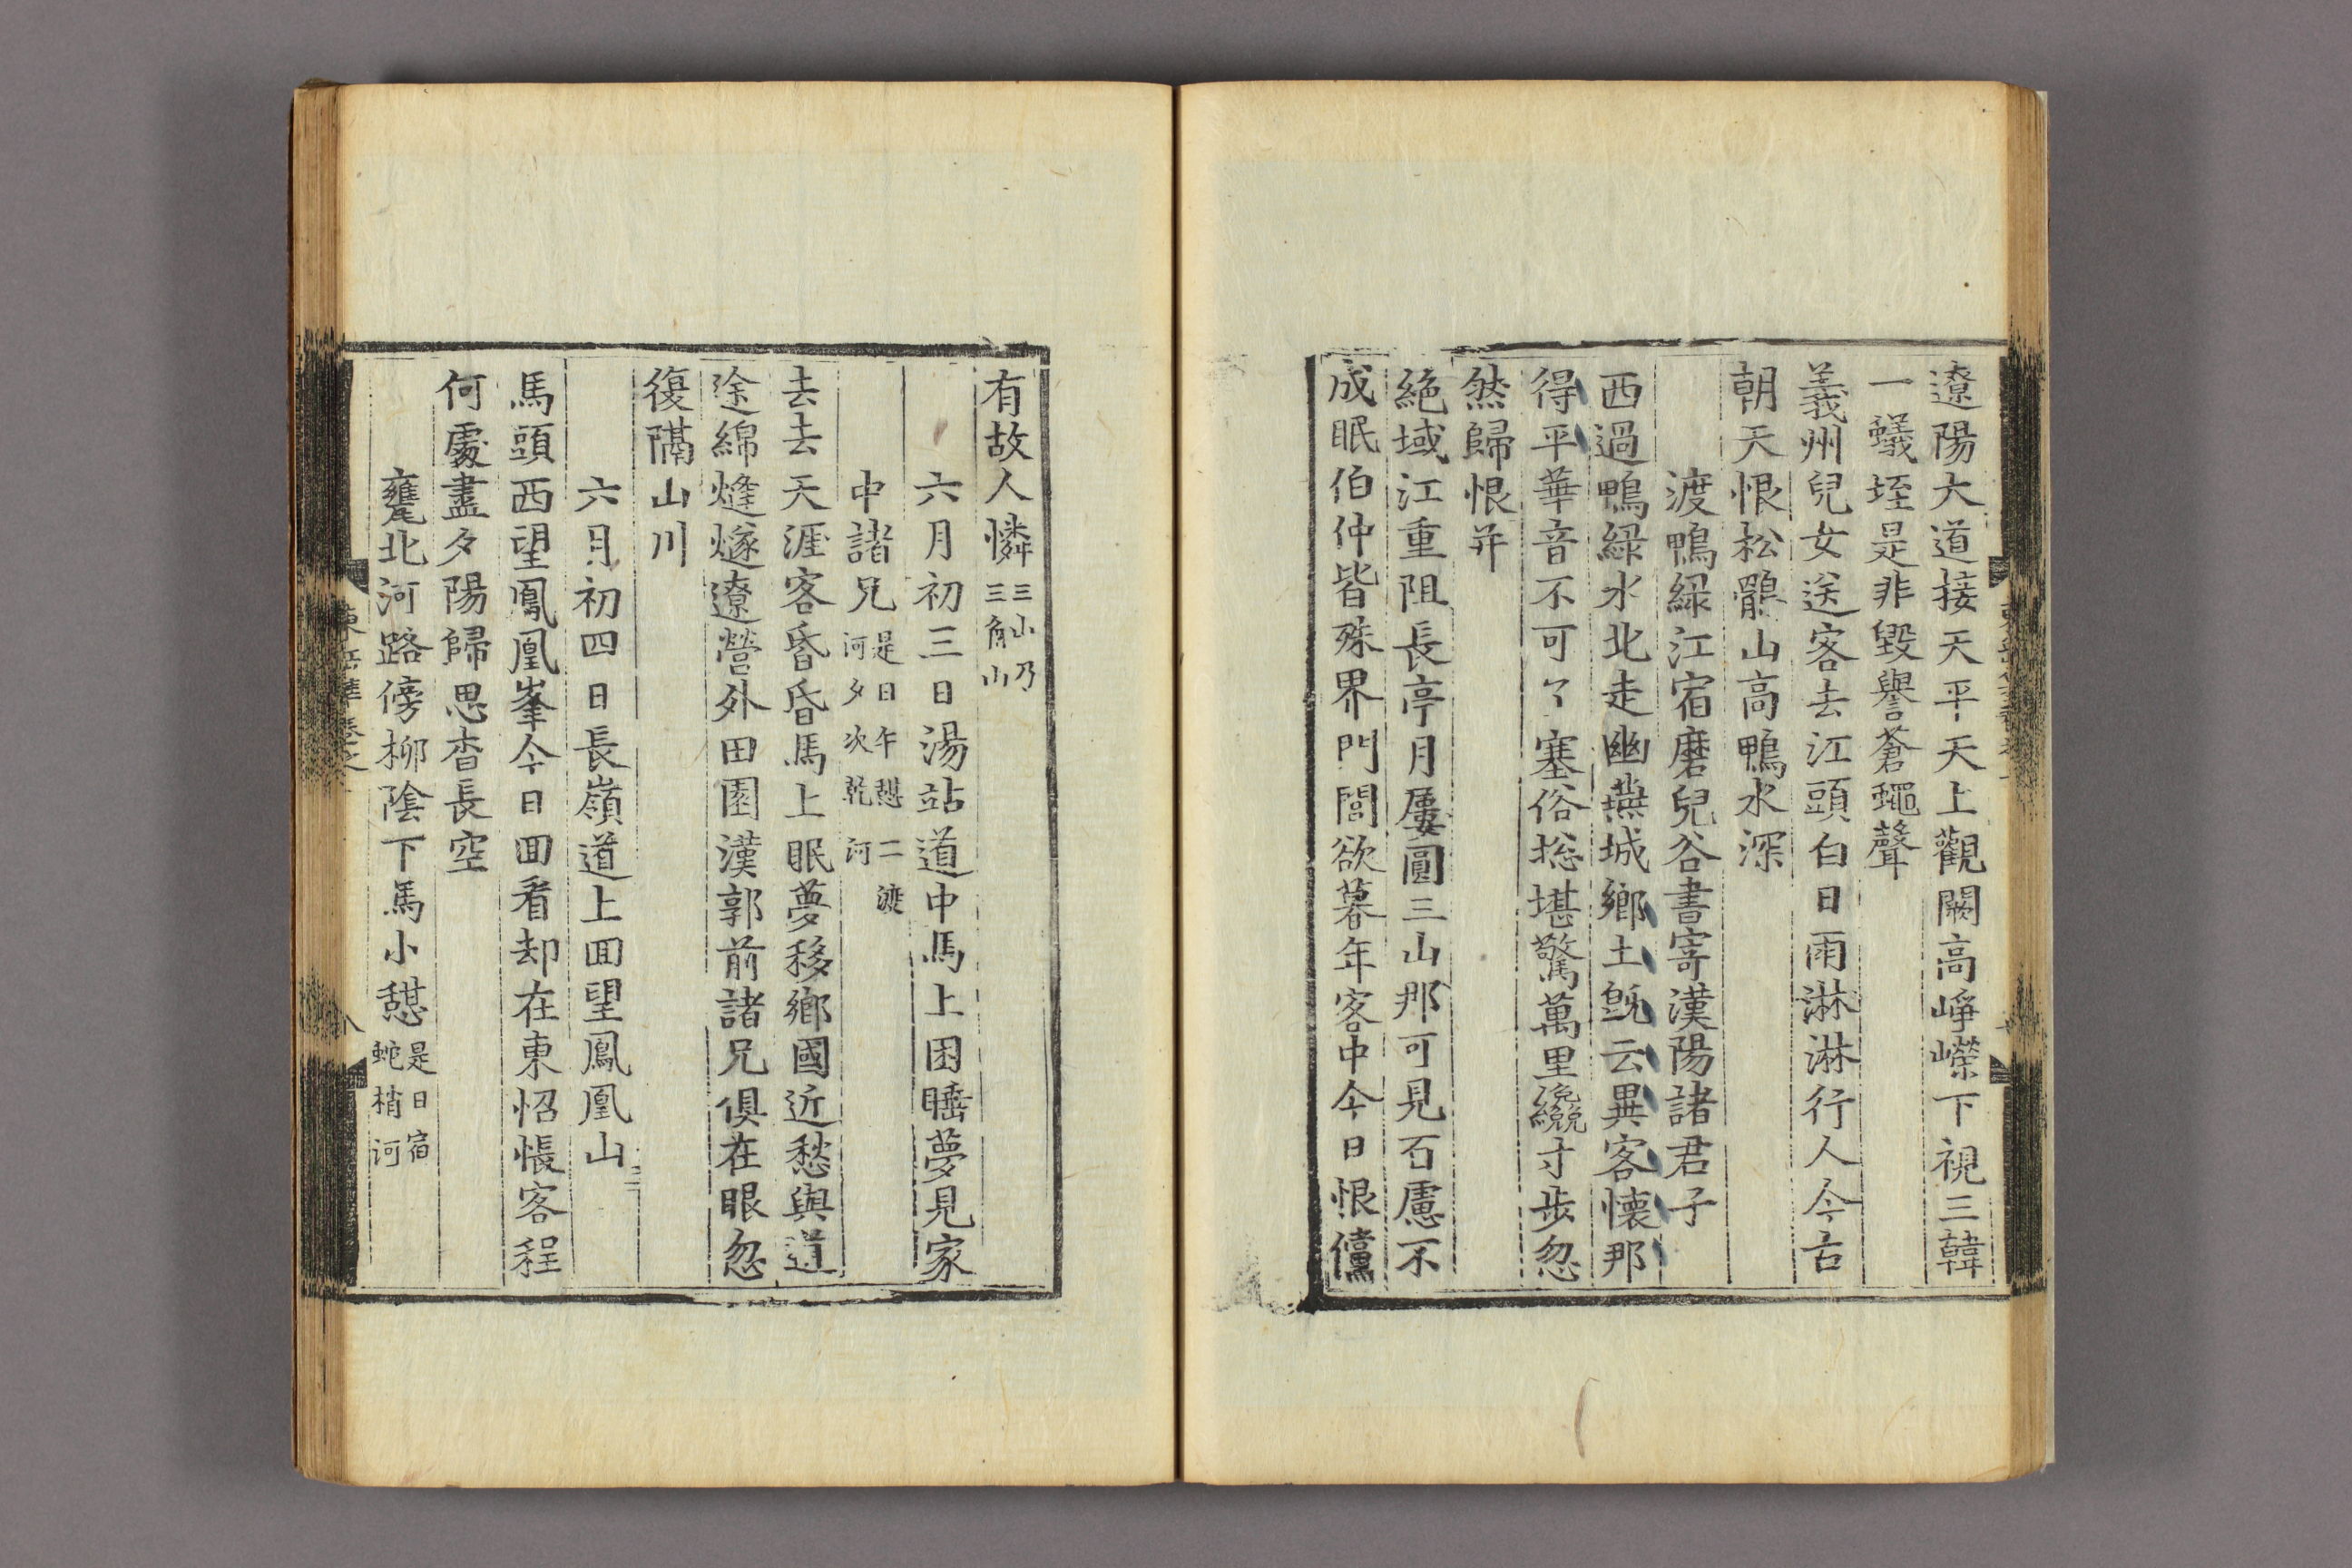 遼陽大道接天平天上觀闕高崢嶸下視三韓
一蟻垤是非毀譽蒼蠅聲
義州兒女送客去江頭白日雨淋淋行人今古
朝天恨松鶻山高鴨水深
渡鴨綠江宿磨兒谷書寄漢陽諸君子
西過鴨綠水北走幽燕城鄉土旣云異客懷那
得平華音不可了塞俗捴堪驚萬里纔寸步忽
然歸恨并
絕域江重阻長亭月屢圓三山那可見百慮不
成眠伯仲皆殊界門閭欲暮年客中今日恨儻
有故人憐三山乃三角山
六月初三日湯站道中馬上困睡夢見家
中諸兄是日午憇二渡河夕次乾河
去去天涯客昏昏馬上眠夢移鄉國近愁與道
途綿烽燧遼營外田園漢郭前諸兄俱在眼忽
復隔山川
六月初四日長嶺道上回望鳳凰山二
馬頭西望鳳凰峯今日回看却在東怊悵客程
何處盡夕陽歸思杳長空
甕北河路傍柳陰下馬小憇是日宿蛇梢河